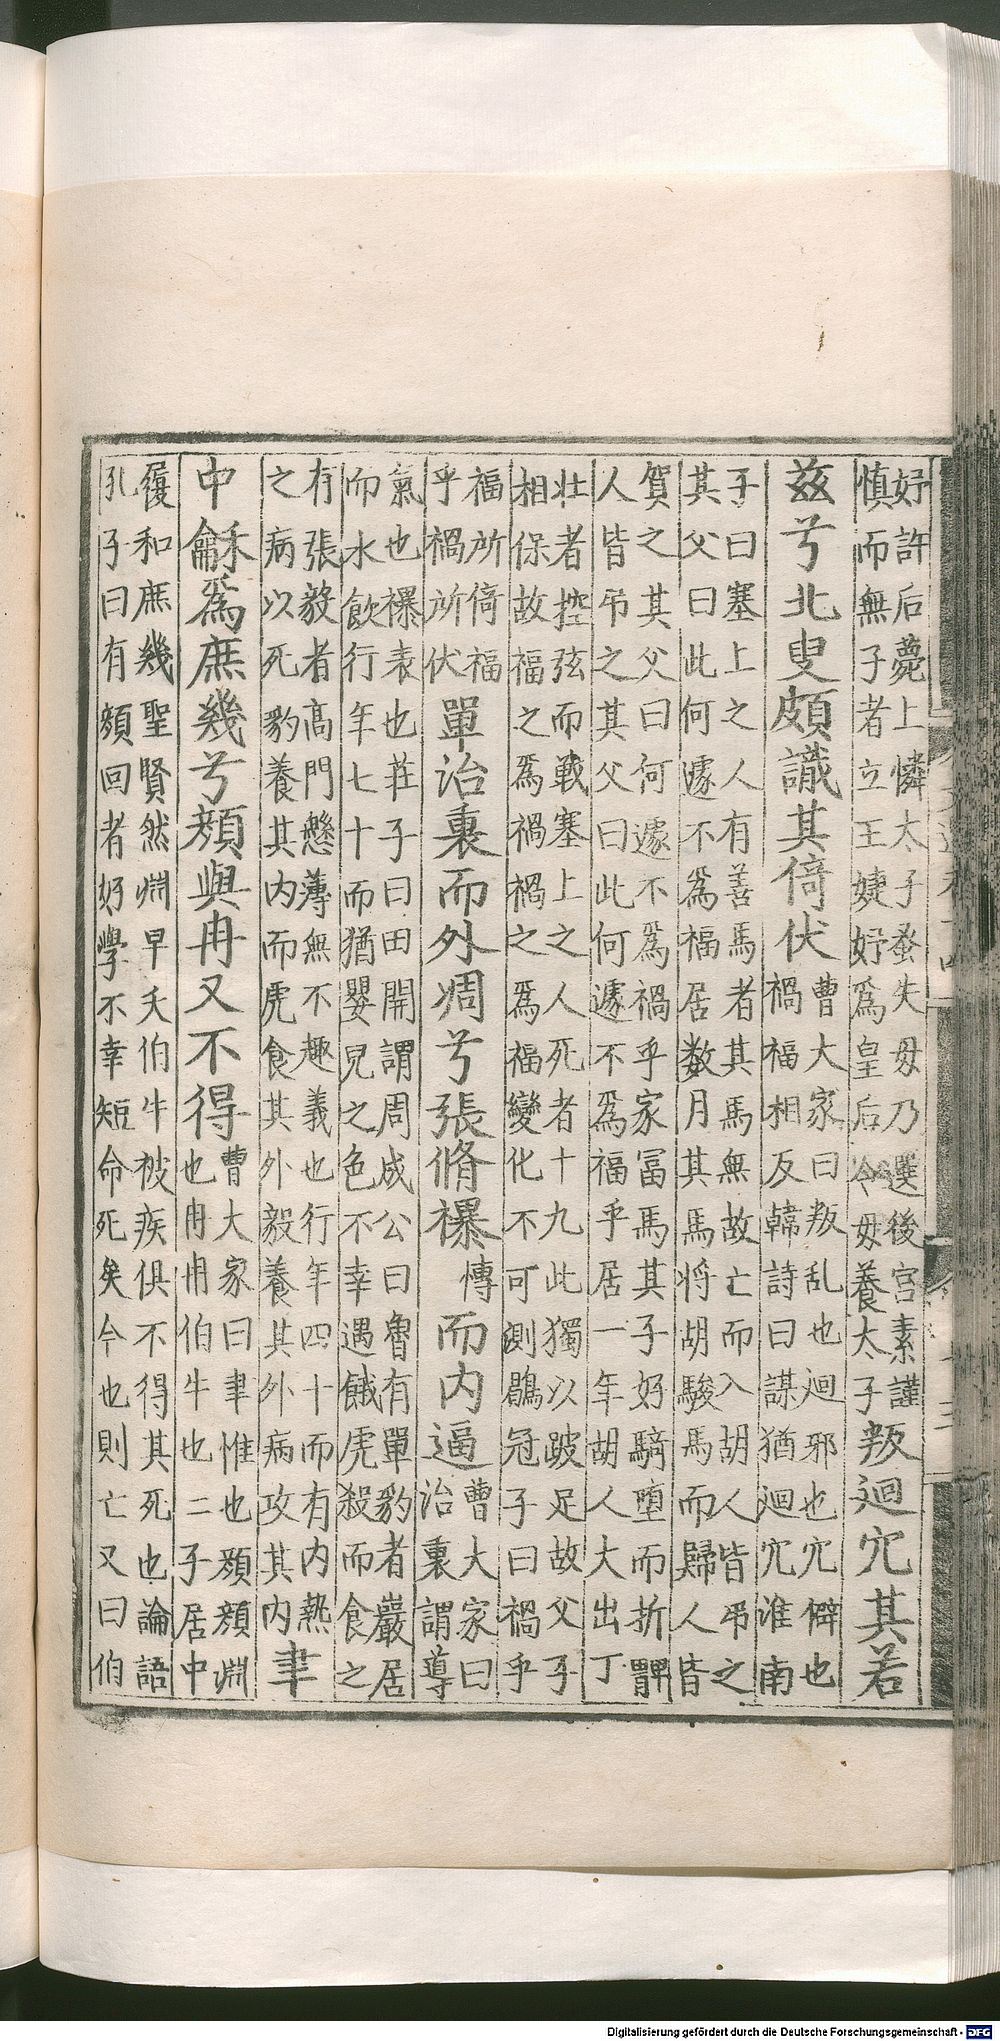 好許后薨上憐太子蚤失母乃選後宫素謹
慎而無子者立王婕妤爲皇后令母養太子
叛迴宂其若
兹兮北叟頗識其倚伏
曹大家曰叛乱也迴邪也宂僻也
禍福相反韓詩曰謀猶迴宂淮南
子曰塞上之人有善馬者其馬無故亡而入胡人皆弔之
其父曰此何遽不爲福居数月其馬将胡駿馬而歸人皆
賀之其父曰何遽不爲禍乎家冨馬其子好騎墮而折髀
人皆弔之其父曰此何遽不爲福乎居一年胡人大出丁
壮者控弦而戰塞上之人死者十九此獨以跛足故父子
相保故福之爲禍禍之爲福變化不可測鶡冠子曰禍乎
福所倚福
乎禍所伏
單治裏而外凋兮張脩襮
愽
而内逼
曹大家曰
治裏謂導
氣也襮表也莊子曰田開謂周威公曰魯有單豹者巖居
而水飲行年七十而猶嬰兒之色不幸遇餓虎殺而食之
有張毅者髙門懸薄無不趣義也行年四十而有内熱
之病以死豹養其内而虎食其外毅養其外病攻其内
聿
中龢爲庶幾兮顔與冉又不得
曹大家曰聿惟也顔顔淵
也冉冉伯牛也二子居中
履和庶幾聖賢然淵早夭伯牛被疾俱不得其死也論語
孔子曰有顔回者好學不幸短命死矣今也則亡又曰伯
Digitalisierung gefördert durch die Deutsche Forschungsgemeinschaft - DFG